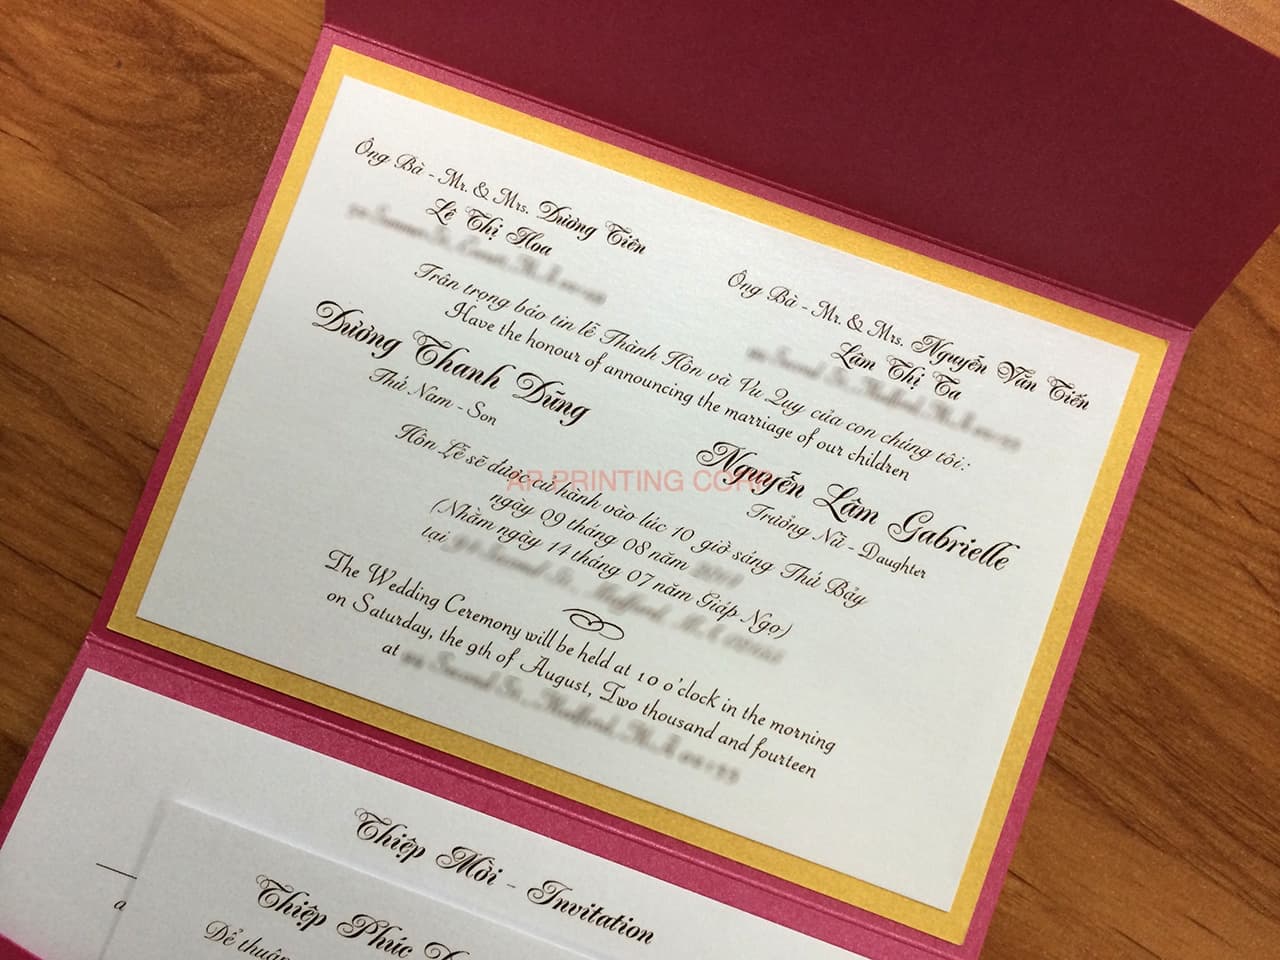 Ông Bà - Mr. & Mrs. Dương Tiên
Lê Thị Hoa
Ông Bà - Mr. & Mrs. Nguyễn Văn Tiến
Lâm Thị Ta
Trân trọng báo tin lễ Thành Hôn và Vu Quy của con chúng tôi:
Have the honour of announcing the marriage of our children
Dương Thanh Dũng
Thứ Nam - Son
Nguyễn Lâm Gabrielle
Trưởng Nữ - Daughter
Hôn Lễ sẽ được cử hành vào lúc 10 giờ sáng Thứ Bảy
ngày 09 tháng 08 năm
(Nhằm ngày 14 tháng 07 năm Giáp Ngọ)
tại
The Wedding Ceremony will be held at 10 o'clock in the morning
on Saturday, the 9th of August, Two thousand and fourteen
at
AP PRINTING CORP
Thiệp Mời - Invitation
Thiệp Phúc
Để thuận
a